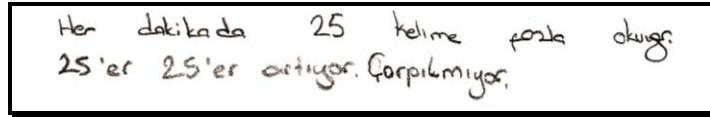 Her dakikada 25 kelime fazla okuyor.
25'er 25'er artıyor. Çarpılmıyor.